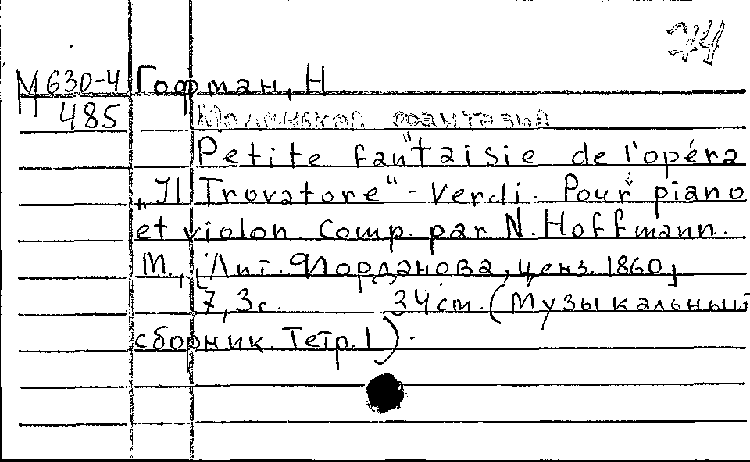 74
М 630-4 Гофман, Н
485 Маленькая фантазия
Petite fantaisie de l'opéra
„Il Trovatore" - Verdi. Pour piano
et violon. Comp. par N. Hoffmann.
М., [Лит. Флорданова, ценз. 1860]
7, 3 с. 34 см. (Музыкальный
сборник. Тетр. 1).